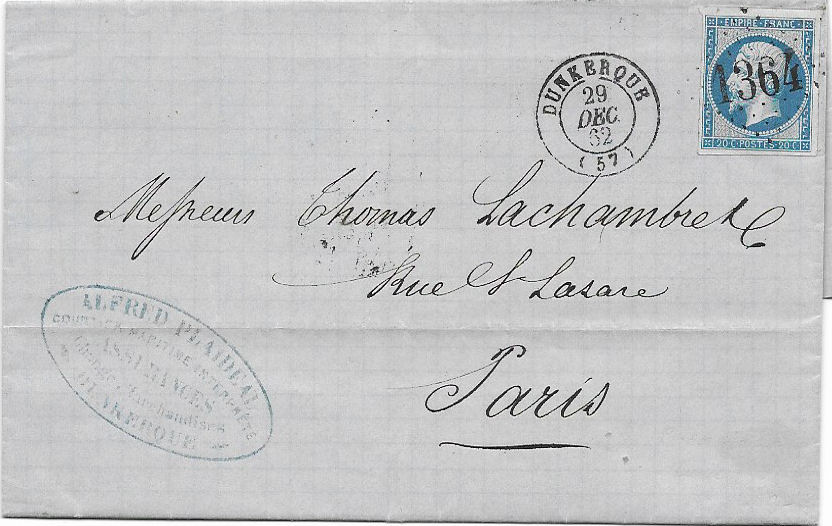 EMPIRE FRANC
1364
20 C · POSTES · 20 C
DUNKERQUE
29
DEC.
62
(57)
Messieurs Thomas Lachambre & C
Rue St Lazare
Paris
ALFRED PLAIDEAU
COURTIER MARITIME INTERPRÈTE
ASSURANCES
Marchandises
DUNKERQUE